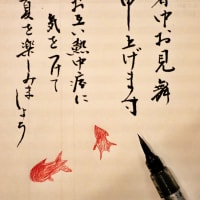 暑中お見舞
申し上げます
お互い熱中症に
気をつけて
夏を楽しみましょう